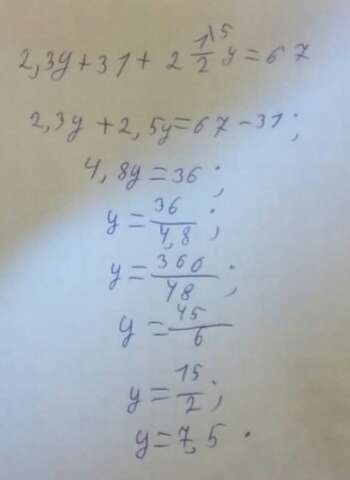 2,3y+31+2 1\5/2 y=67
2,3y+2,5y=67-31;
4,8y=36;
y=36/4,8;
y=360/48;
y=45/6
y=15/2;
y=7,5.